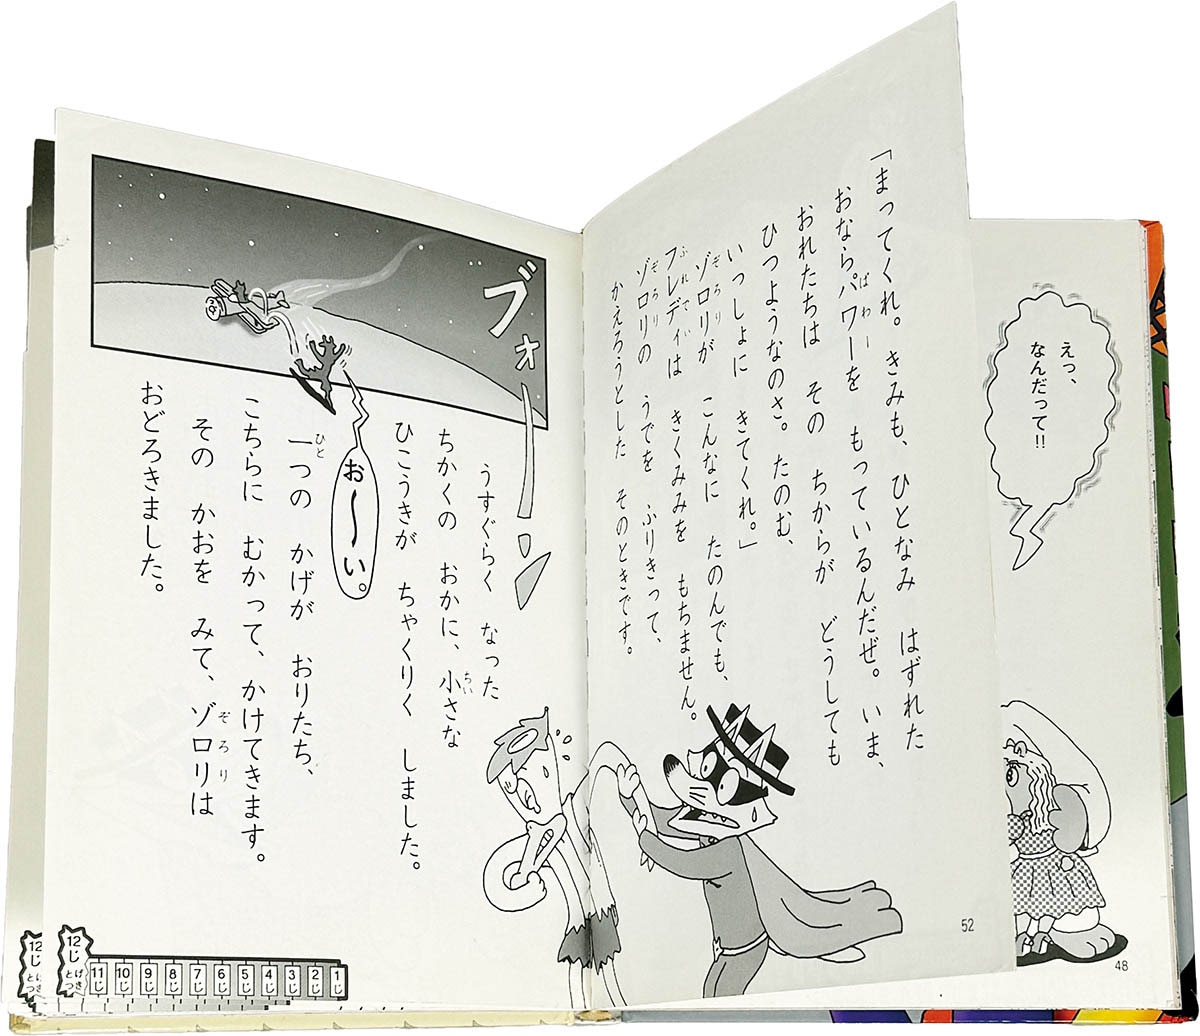 えっ、
なんだって!!
48
「まってくれ。きみも、ひとなみ はずれた
おならパワーを もっているんだぜ。いま、
ぱわー
おれたちは その ちからが どうしても
ひつようなのさ。たのむ、
いっしょに きてくれ。」
ゾロリが こんなに たのんでも、
ぞろり
フレディは ききみみを もちません。
ふれでぃ
ゾロリの うでを ふりきって、
ぞろり
かえろうとした そのときです。
52
ブォーン
うすぐらく なった
ちかくの おかに、小さな
ちい
ひこうきが ちゃくりく しました。
お〜い。
一つの かげが おりたち、
ひと
こちらに むかって、かけてきます。
その かおを みて、ゾロリは
ぞろり
おどろきました。
1じ
2じ
3じ
4じ
5じ
6じ
7じ
8じ
9じ
10じ
11じ
12じ
げきとつ
12じ
げきとつ